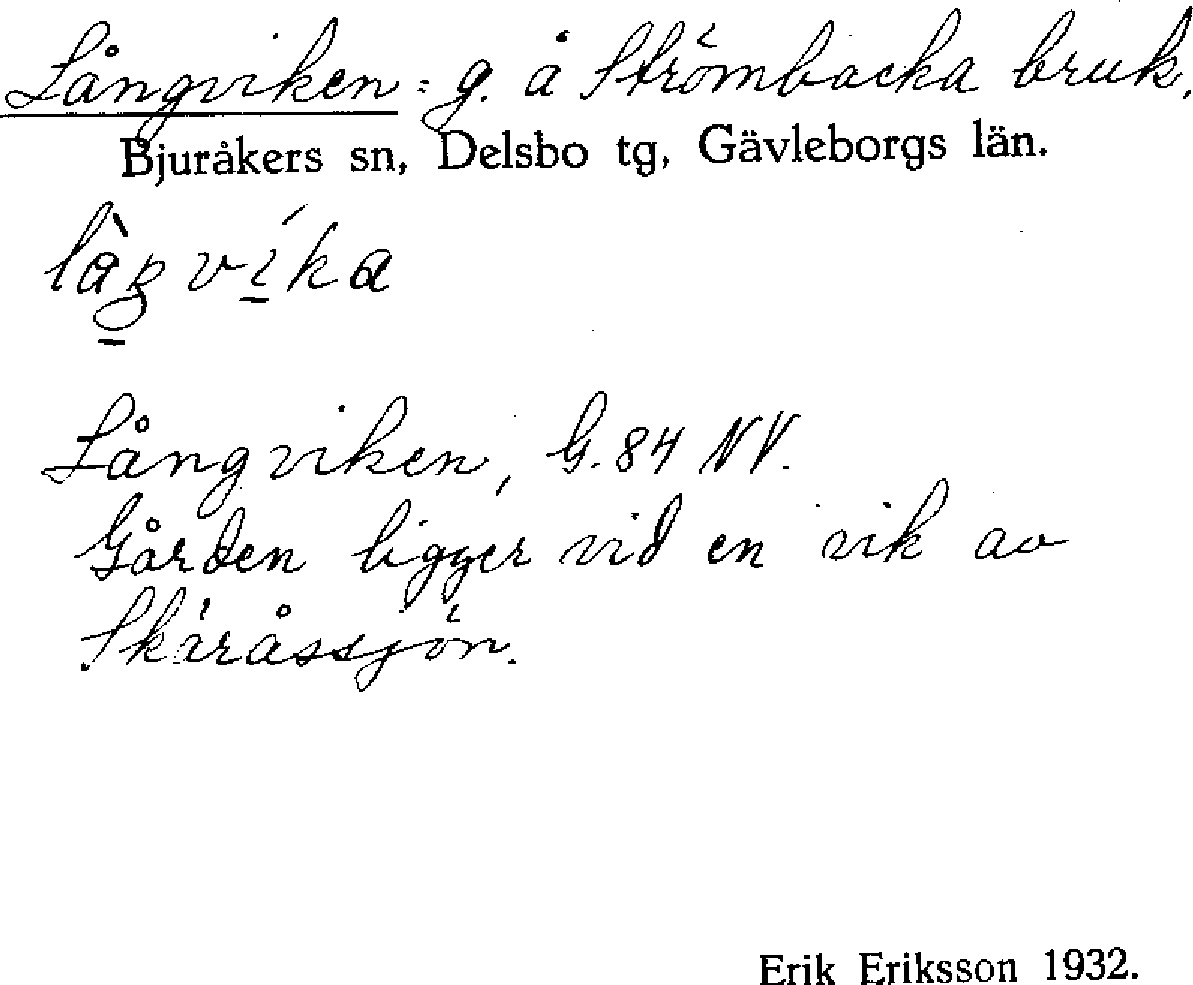 Långviken = g. å Strömbacka bruk.
Bjuråkers sn, Delsbo tg, Gävleborgs län.
Långviken, G. 84 NV.
Gården ligger vid en vik av
Skäråssjön.
Erik Eriksson 1932.